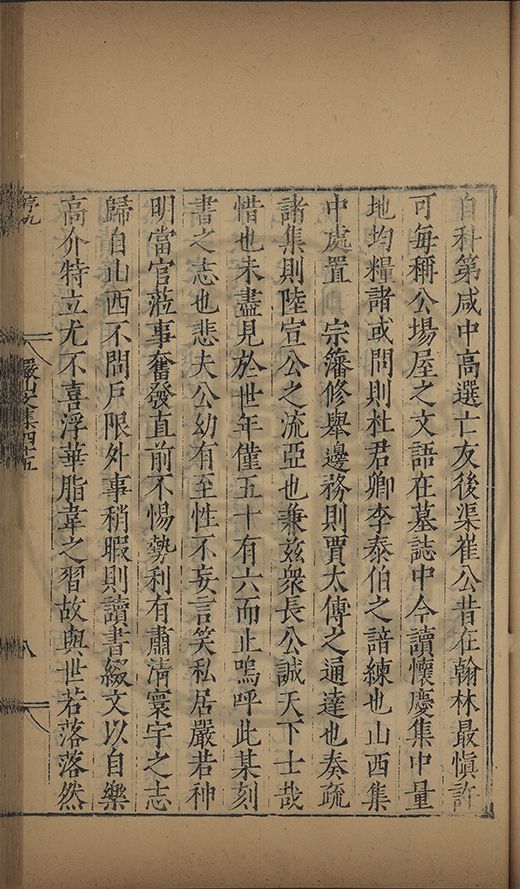 自科第咸中高選亡友後渠崔公昔在翰林最慎許
可每稱公場屋之文語在墓誌中今讀懷慶集中量
地均糧諸或問則杜君卿李泰伯之諳練也山西集
中處置　宗籓修舉邊務則賈太傅之通達也奏疏
諸集則陸宣公之流亞也兼兹衆長公誠天下士哉
惜也未盡見於世年僅五十有六而止嗚呼此某刻
書之志也悲夫公幼有至性不妄言笑私居嚴若神
明當官蒞事奮發直前不惕勢利有肅清寰宇之志
歸自山西不問戶限外事稍暇則讀書綴文以自樂
高介特立尤不喜浮華脂韋之習故與世若落落然
序九
儼山文集四十五
八